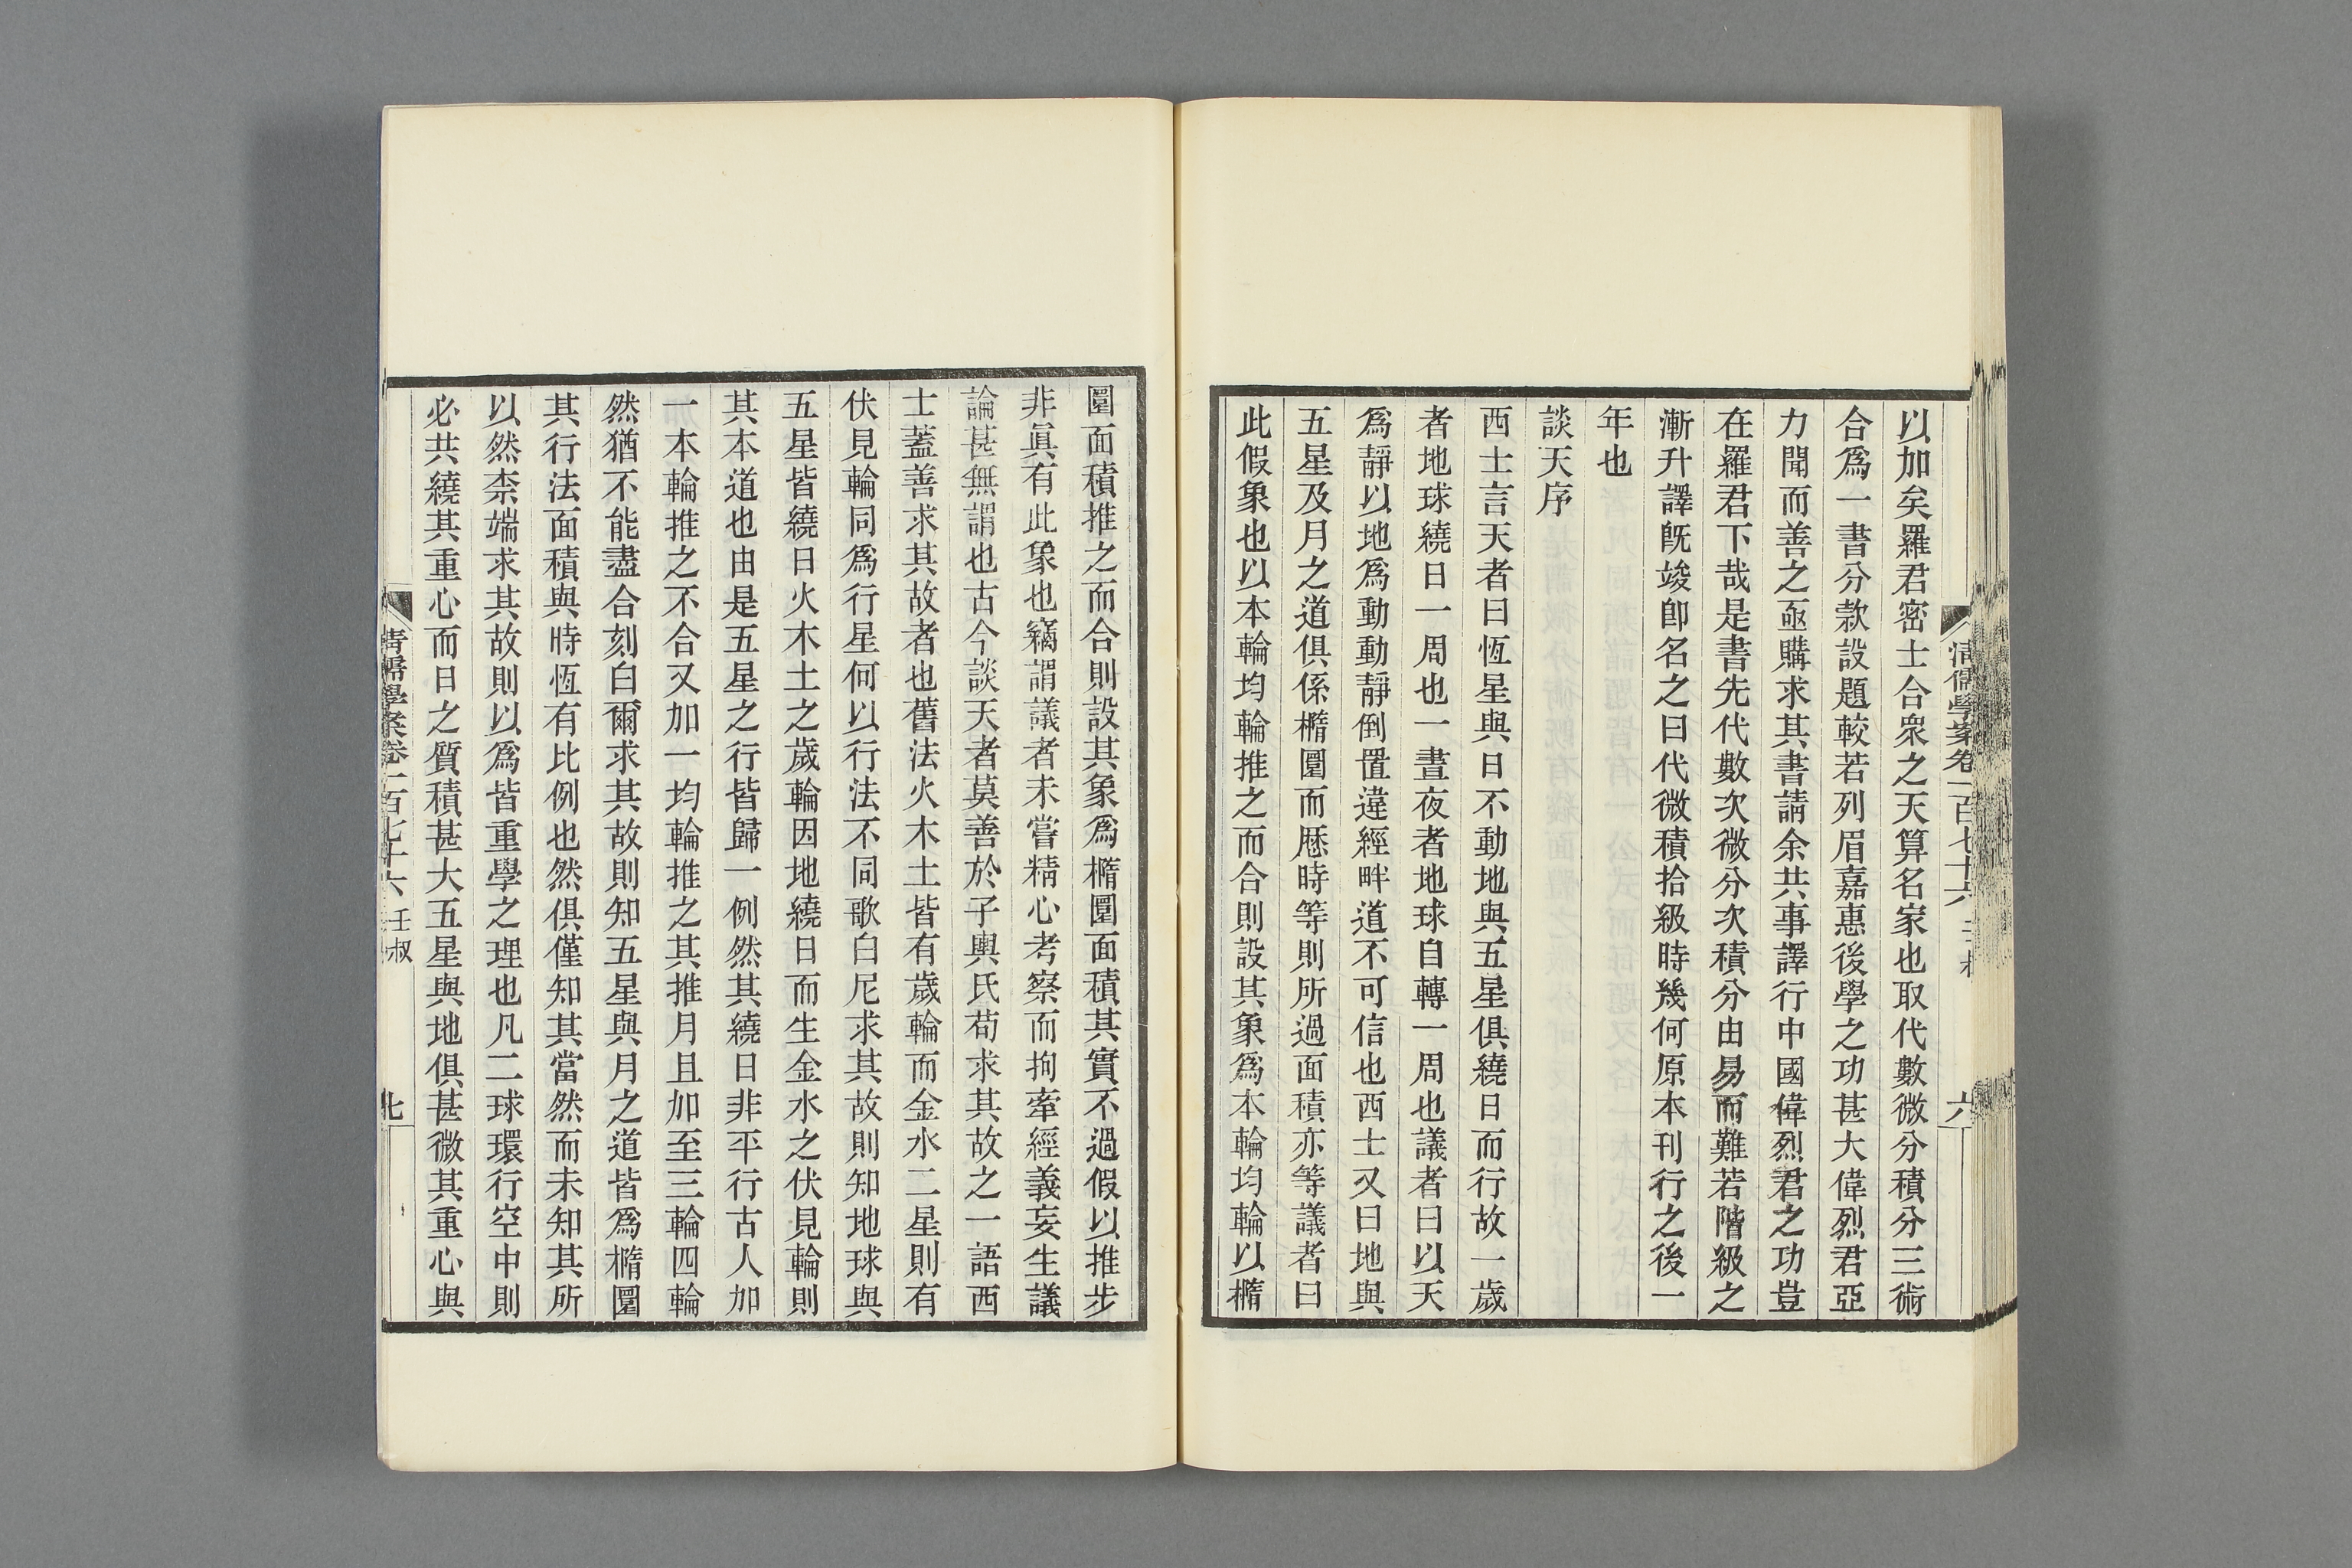 以加矣羅君密士合衆之天算名家也取代數微分積分三術
合爲一書分款設題較若列眉嘉惠後學之功甚大偉烈君亞
力聞而善之亟購求其書請余共事譯行中國偉烈君之功豈
在羅君下哉是書先代數次微分次積分由易而難若階級之
漸升譯既竣卽名之曰代微積拾級時幾何原本刊行之後一
年也
談天序
西士言天者曰恆星與日不動地與五星俱繞日而行故一歲
者地球繞日一周也一晝夜者地球自轉一周也議者曰以天
爲靜以地爲動動靜倒置違經畔道不可信也西士又曰地與
五星及月之道俱係橢圜而歷時等則所過面積亦等議者曰
此假象也以本輪均輪推之而合則設其象爲本輪均輪以橢
清儒學案卷一百七十六
六
圜面積推之而合則設其象爲橢圜面積其實不過假以推步
非眞有此象也竊謂議者未嘗精心考察而拘牽經義妄生議
論甚無謂也古今談天者莫善於子輿氏苟求其故之一語西
士蓋善求其故者也舊法火木土皆有歲輪而金水二星則有
伏見輪同爲行星何以行法不同歌白尼求其故則知地球與
五星皆繞日火木土之歲輪因地繞日而生金水之伏見輪則
其本道也由是五星之行皆歸一例然其繞日非平行古人加
一本輪推之不合又加一均輪推之其推月且加至三輪四輪
然猶不能盡合刻白爾求其故則知五星與月之道皆爲橢圜
其行法面積與時恆有比例也然俱僅知其當然而未知其所
以然柰端求其故則以爲皆重學之理也凡二球環行空中則
必共繞其重心而日之質積甚大五星與地俱甚微其重心與
清儒學案卷一百七十六 壬叔
七